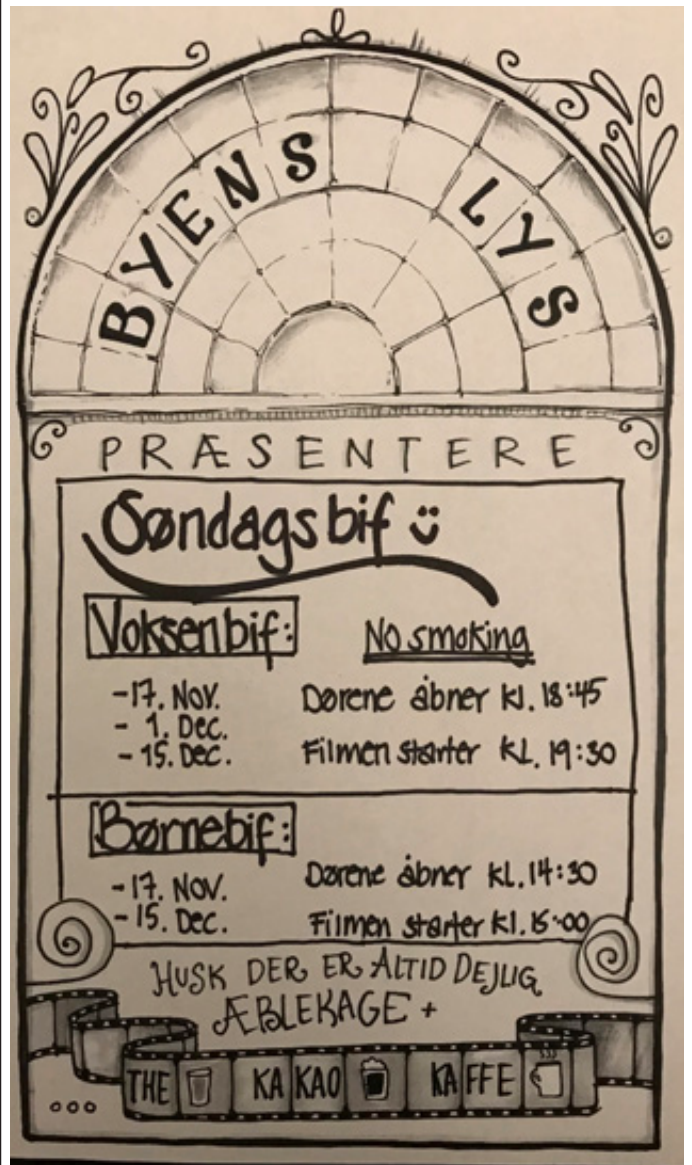 BYENS LYS
PRÆSENTERE
Søndagsbif
Voksenbif:
No smoking
-17. Nov.
- 1. Dec.
- 15. Dec.
Dørene åbner kl. 18:45
Filmen starter kl. 19:30
Børnebif:
-17. Nov.
-15. Dec.
Dørene åbner kl. 14:30
Filmen starter kl. 15:00
HUSK DER ER ALTID DEJLIG
ÆBLEKAGE +
THE KAKAO KAFFE
...